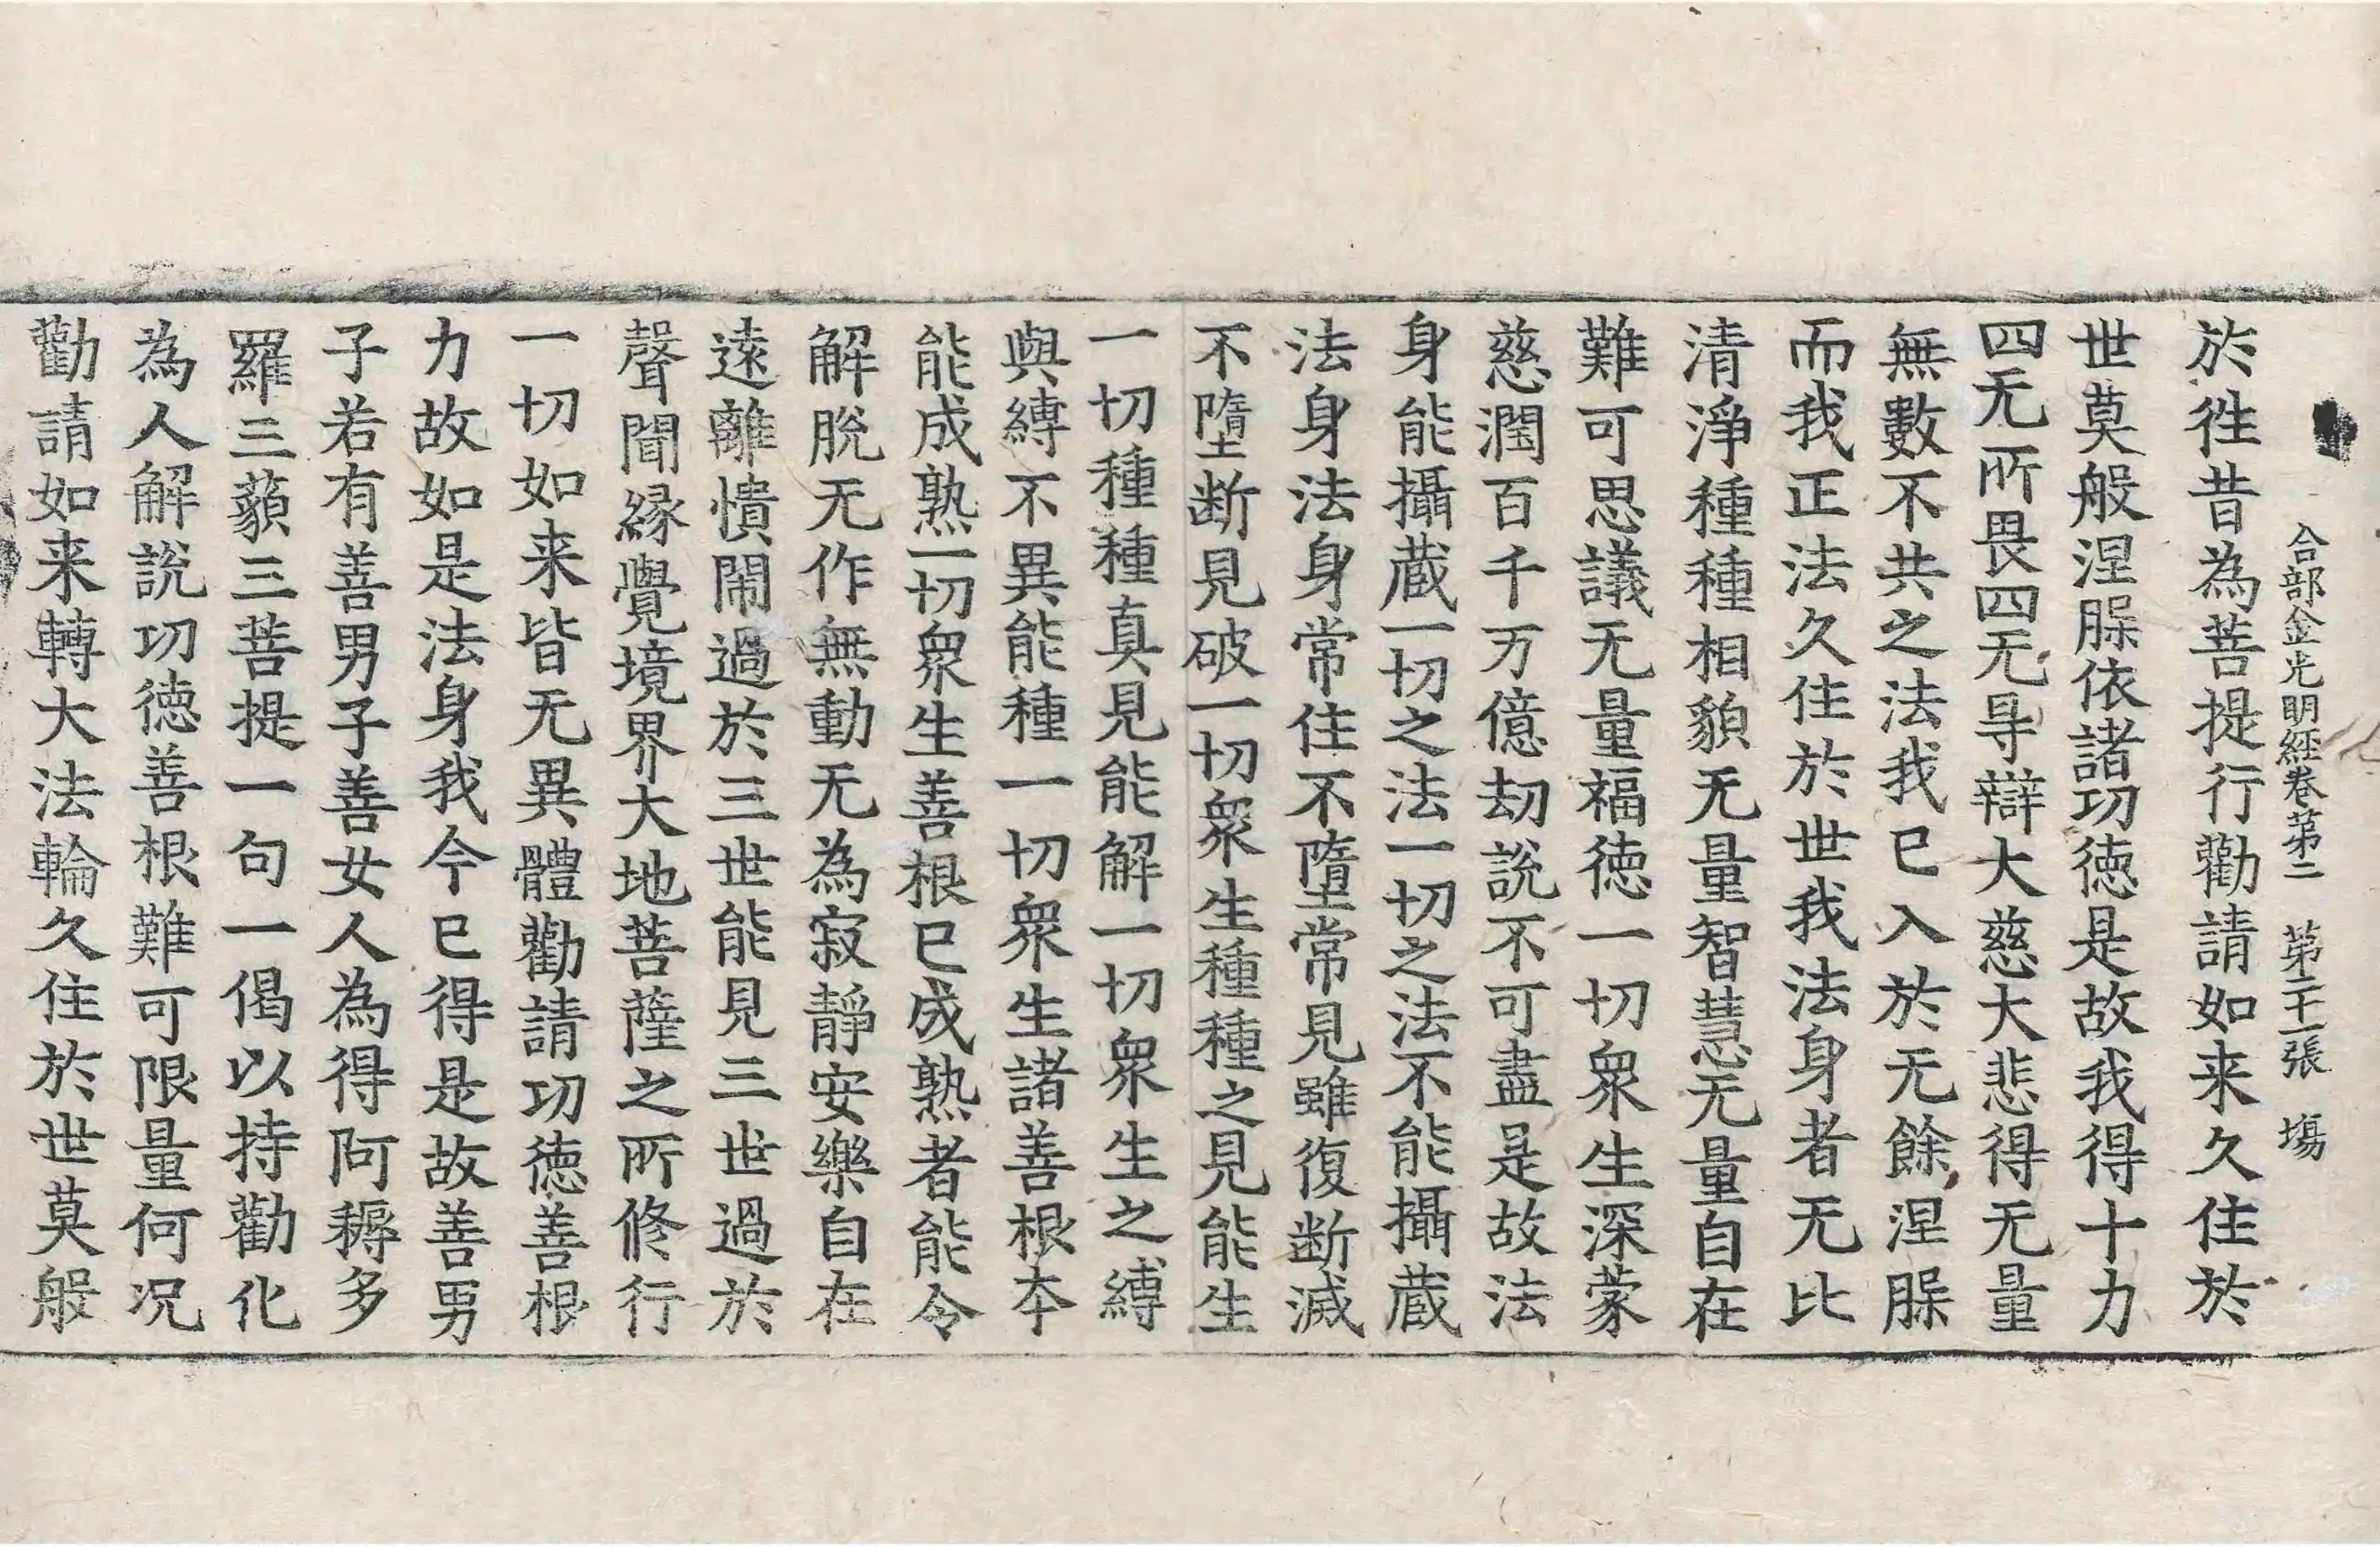 合部金光明經卷第二　第二十一張　塲
於徃昔為菩提行勸請如来久住於
世莫般涅脲依諸功徳是故我得十力
四无所畏四无㝵辯大慈大悲得无量
無數不共之法我已入於无餘涅脲
而我正法久住於世我法身者无比
清淨種種相貌无量智慧无量自在
難可思議无量福徳一切衆生深蒙
慈潤百千万億劫說不可盡是故法
身能攝蔵一切之法一切之法不能攝蔵
法身法身常住不墮常見雖復断滅
不墮断見破一切衆生種種之見能生
一切種種真見能解一切衆生之縛
與縛不異能種一切衆生諸善根本
能成熟一切衆生善根已成熟者能令
解脫无作無動无為寂靜安樂自在
逺離憒閙過於三世能見三世過於
聲聞縁覺境界大地菩薩之所修行
一切如来皆无異體勸請功徳善根
力故如是法身我今已得是故善男
子若有善男子善女人為得阿耨多
羅三藐三菩提一句一偈以持勸化
為人解說功徳善根難可限量何况
勸請如来轉大法輪久住於世莫般